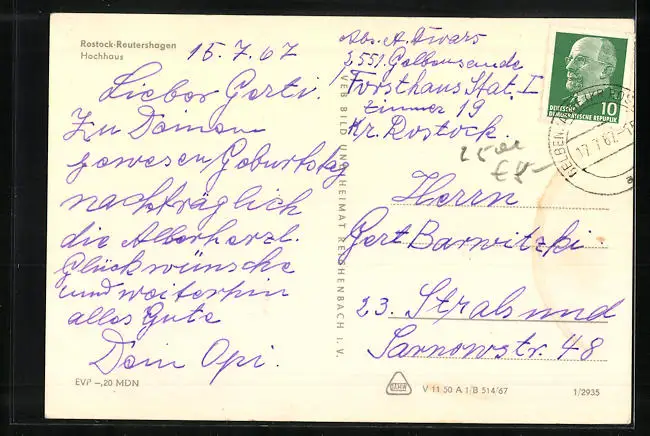 Rostock-Reutershagen
Hochhaus
15.7.67
Lieber Gerti.
Zu Deinem
gewesen Geburtstag
nachträglich
die Allerherzl.
Glückwünsche
und weiterhin
alles Gute
Dein Opi.
EVP –,20 MDN
VEB BILD UND HEIMAT REICHENBACH I. V.
Abs. A.
2551. Gelbensande
Forsthaus Stat. I
Zimmer 19
Kr. Rostock.
DEUTSCHE
DEMOKRATISCHE REPUBLIK
10
17.7.67
Herrn
Gert Barwitzki
23. Stralsund
Sarnowstr. 48
V 11 50 A 1/B 514/67
1/2935